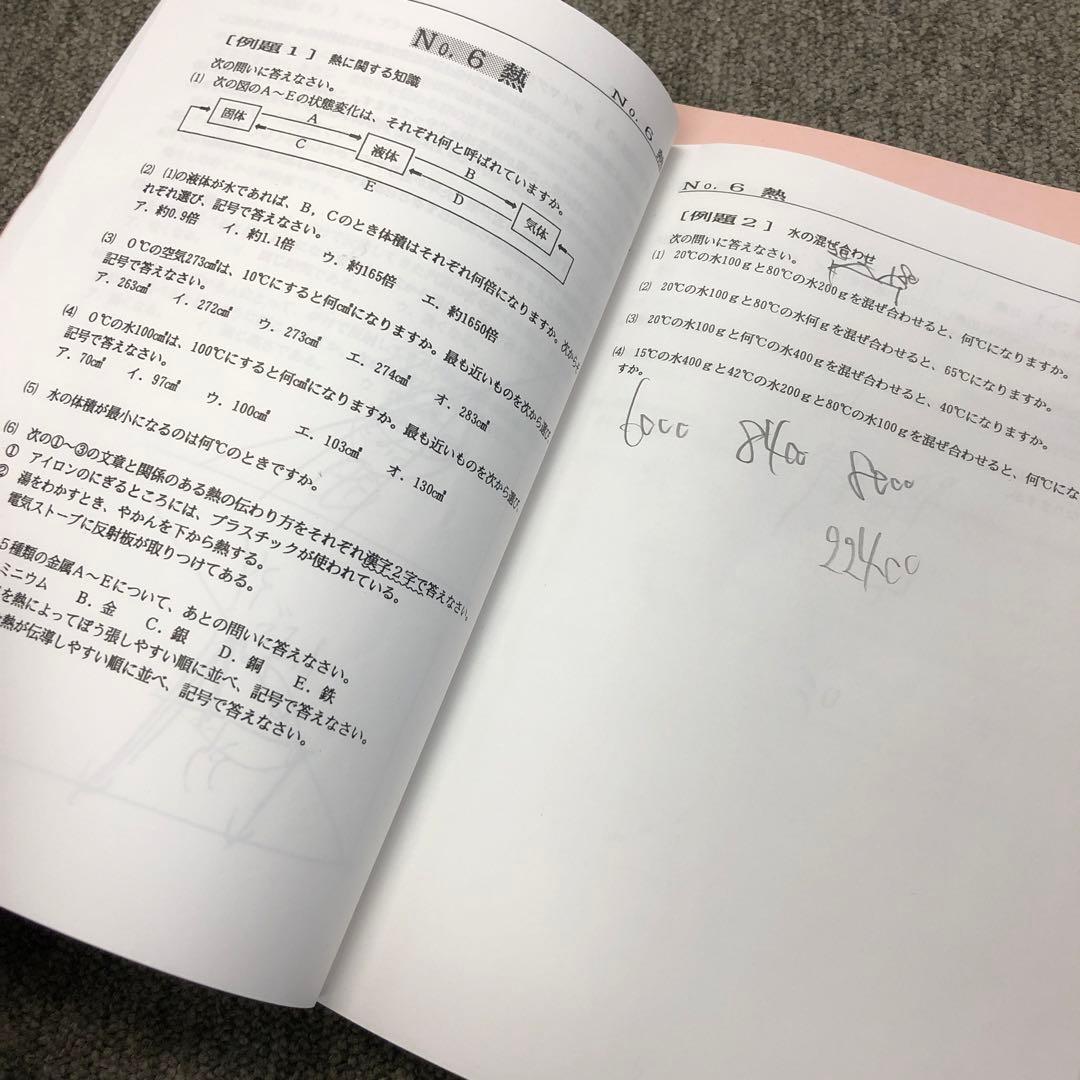 No. 6 熱
[例題1] 熱に関する知識
次の問いに答えなさい。
(1) 次の図のA～Eの状態変化は、それぞれ何と呼ばれていますか。
固体
A
C
液体
B
D
E
気体
(2) (1)の液体が水であれば、B，Cのとき体積はそれぞれ何倍になりますか。次からそ
れぞれ選び、記号で答えなさい。
ア．約0.9倍 イ．約1.1倍 ウ．約165倍 エ．約1650倍
(3) 0℃の空気273cm³は、10℃にすると何cm³になりますか。最も近いものを次から選び
記号で答えなさい。
ア．263cm³ イ．272cm³ ウ．273cm³ エ．274cm³ オ．283cm³
(4) 0℃の水100cm³は、100℃にすると何cm³になりますか。最も近いものを次から選び
記号で答えなさい。
ア．70cm³ イ．97cm³ ウ．100cm³ エ．103cm³ オ．130cm³
(5) 水の体積が最小になるのは何℃のときですか。
(6) 次の①～③の文章と関係のある熱の伝わり方をそれぞれ漢字2字で答えなさい。
① アイロンのにぎるところには、プラスチックが使われている。
② 湯をわかすとき、やかんを下から熱する。
電気ストーブに反射板が取りつけてある。
5種類の金属A～Eについて、あとの問いに答えなさい。
ミニウム B．金 C．銀 D．銅 E．鉄
を熱によってぼう張しやすい順に並べ、記号で答えなさい。
熱が伝導しやすい順に並べ、記号で答えなさい。
No. 6 熱
No. 6 熱
[例題2] 水の混ぜ合わせ
次の問いに答えなさい。
(1) 20℃の水100gと80℃の水200gを混ぜ合わせると、何℃になりますか。
(2) 20℃の水100gと80℃の水何gを混ぜ合わせると、65℃になりますか。
(3) 20℃の水100gと何℃の水400gを混ぜ合わせると、40℃になりますか。
(4) 15℃の水400gと42℃の水200gと80℃の水100gを混ぜ合わせると、何℃にな
すか。
6000 8400 8000
22400